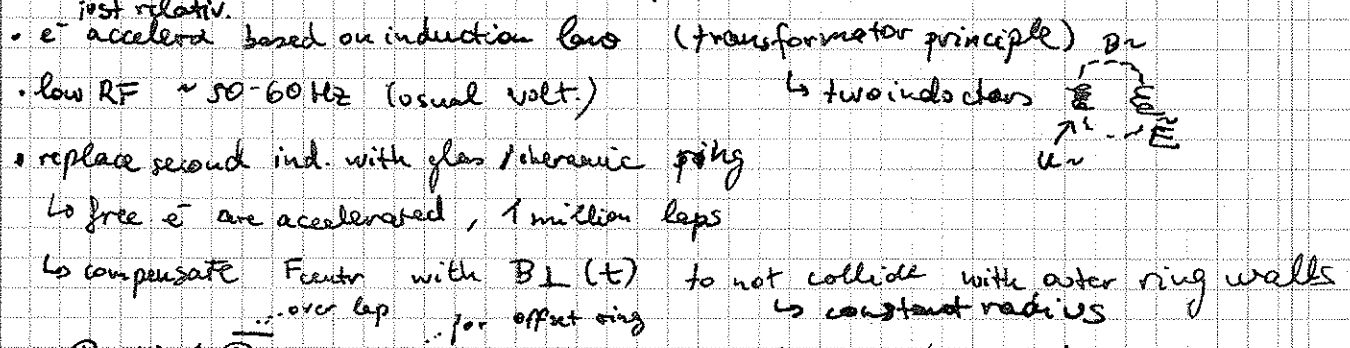 just relativ.
• e⁻ accelera based on induction law (transformator principle) B~
• low RF ~ 50-60 Hz (usual volt.) ↳ two inductors
U~ Ẽ
• replace second ind. with glas / cheramic ring
↳ free e⁻ are accelerated, 1 million laps
↳ compensate Fcentr with B⊥(t) to not collide with outer ring walls
...over lap ...for offset ring ↳ constant radius